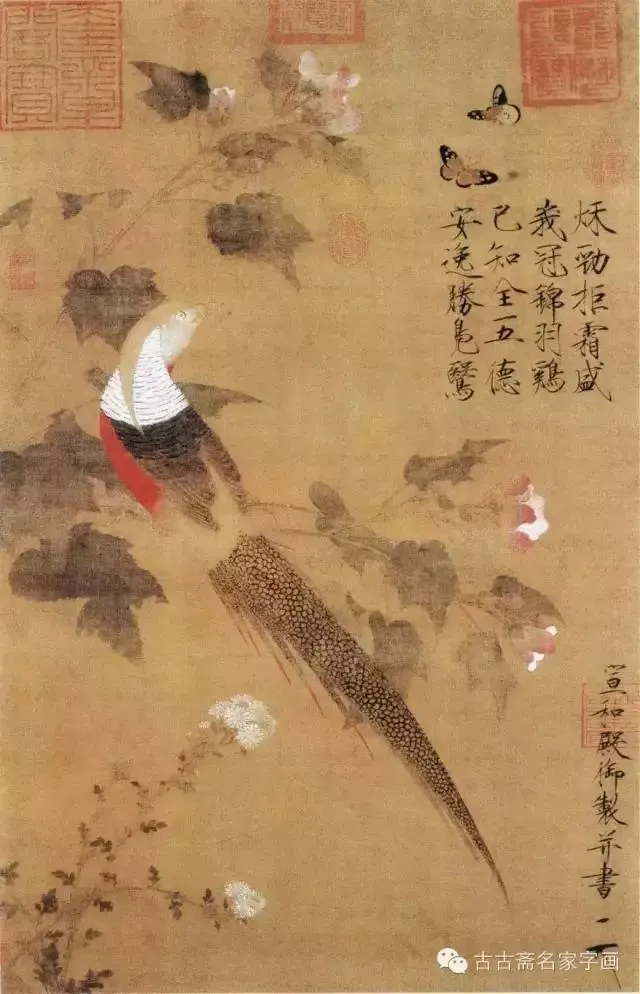 秋勁拒霜盛
峩冠錦羽鷄
已知全五德
安逸勝鳬鷖
宣和殿御製并書
古古斋名家字画